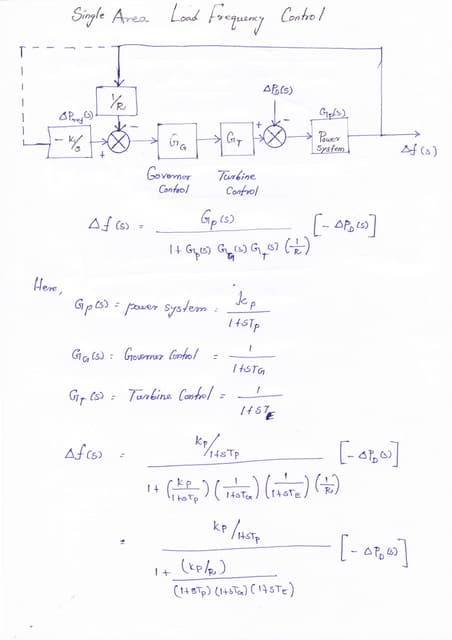 Single Area Load Frequency Control
1/R
ΔPref(s)
ΔPD(s)
-K/s
GG
GT
Gp(s)
Power
system
Δf(s)
+
-
+
-
Governor
Control
Turbine
Control
Δf(s) = Gp(s) / 1 + Gp(s) GG(s) GT(s) (1/R) [-ΔPD(s)]
Here,
Gp(s) = power system = kp / 1+sTp
GG(s) = Governor Control = 1 / 1+sTG
GT(s) = Turbine Control = 1 / 1+sTE
Δf(s) = kp/1+sTp / 1 + (kp/1+sTp) (1/1+sTG) (1/1+sTE) (1/R) [-ΔPD(s)]
= kp/1+sTp / 1 + (kp/R) / (1+sTp) (1+sTG) (1+sTE) [-ΔPD(s)]